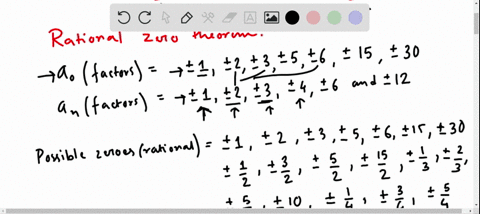 Rational zero theorem:
→ a₀ (factors) = → ±1, ±2, ±3, ±5, ±6, ±15, ±30
aₙ (factors) = → ±1, ±2, ±3, ±4, ±6 and ±12
Possible zeroes (rational) = ±1, ±2, ±3, ±5, ±6, ±15, ±30
± 1/2, ± 3/2, ± 5/2, ± 15/2, ± 1/3, ± 2/3,
± 10, ± 1/4, ± 5/4